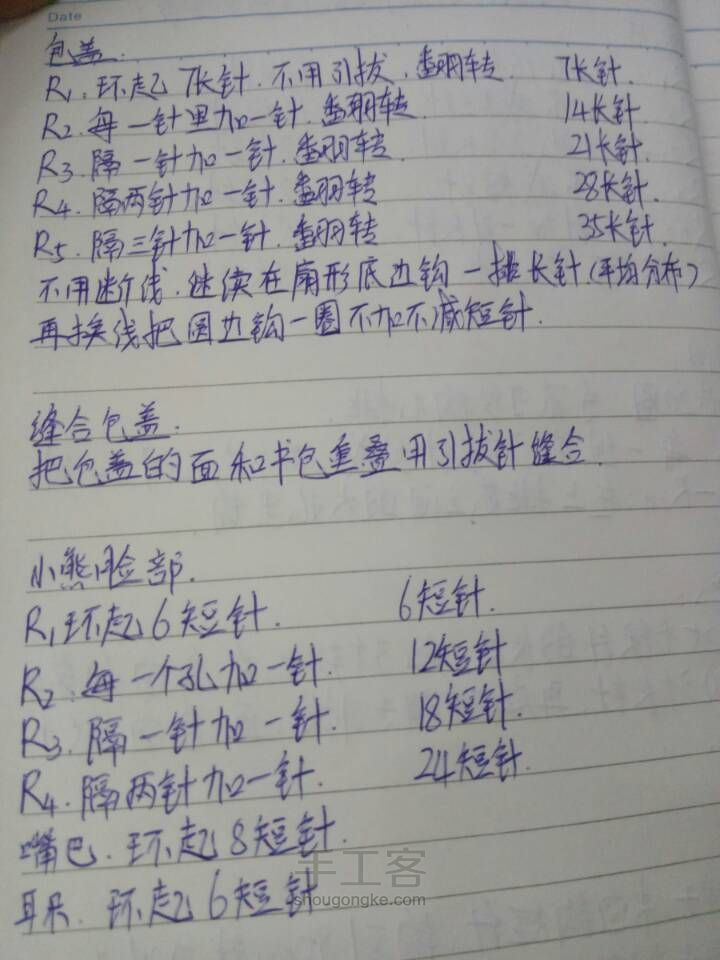 Date
包盖.
R1. 环起7长针. 不用引拔. 翻转 7长针.
R2. 每一针里加一针. 翻转 14长针.
R3. 隔一针加一针. 翻转 21长针.
R4. 隔两针加一针. 翻转 28长针.
R5. 隔三针加一针. 翻转 35长针.
不用断线. 继续在扇形底边钩一排长针(平均分布)
再换线把圆边钩一圈不加不减短针.
缝合包盖.
把包盖的面和书包重叠用引拔针缝合.
小熊脸部.
R1环起6短针. 6短针.
R2. 每一个孔加一针. 12短针
R3. 隔一针加一针. 18短针.
R4. 隔两针加一针. 24短针.
嘴巴. 环起8短针.
耳朵. 环起6短针
手工客
shougongke.com